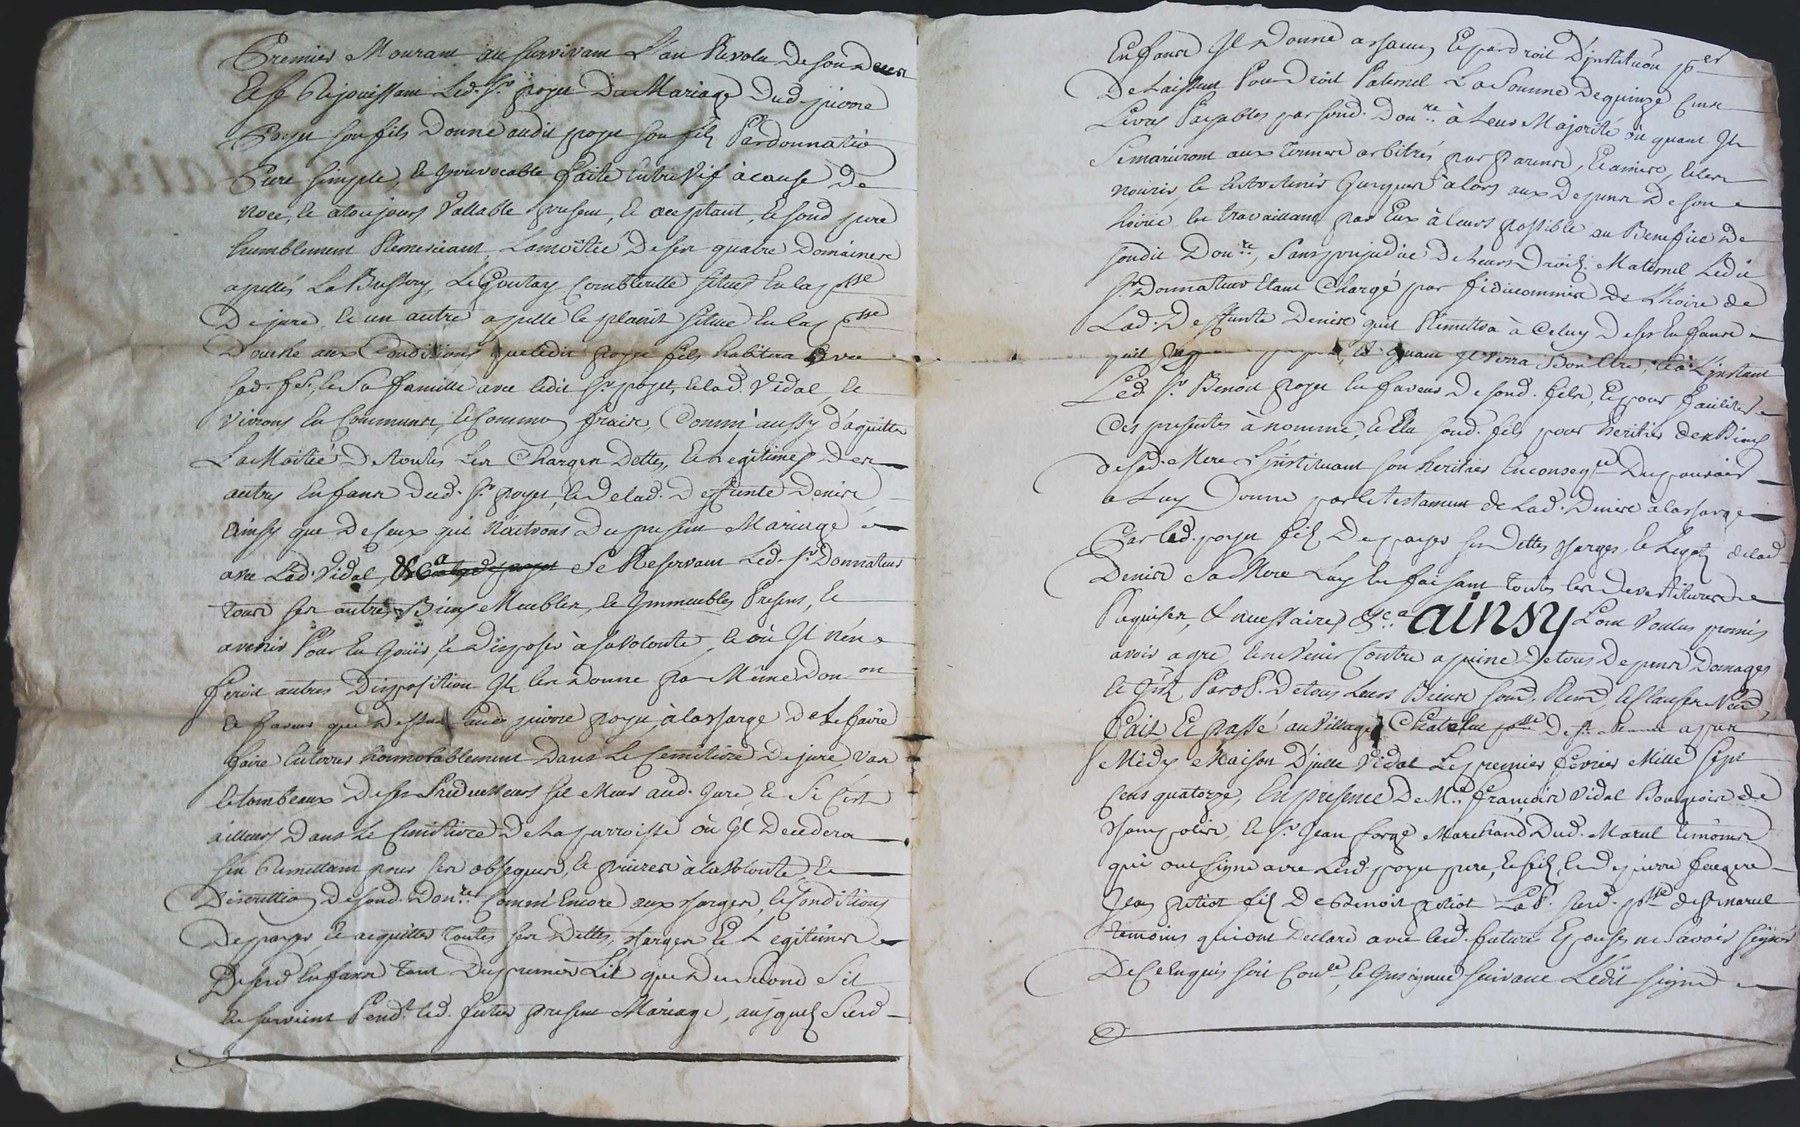 Premier Mourant au survivant L'an Revolu de son deces
Et se Rejouissant Led. Sr. poyet Du Mariage Dud. pierre
Poyet son fils Donne audit poyet son fils Par donnatiõ
Pure simple, et Irrevocable faite Entre Vif à cause de
noce, et atoujours Vallable present, et aceptant, et sond. pere
humblement Remerciant, La moitié De ses quatre Domaines
apellés La Bussery, Le Goutay Combleville situés En la psse
De jure, et un autre apellé le planit situé En la psse
Douche aux Conditions que ledit poyet fils habitera avec
sad. fe., et Sa famille avec ledit Sr. poyet, et lad. Vidal, et
vivrons En Commun, et Commun fraix, Comm'aussy d'aquitter
La Moitié De toutes Les Charges Dettes, et Legitimes Des
autres Enfans dud. Sr. poyet et De lad. Deffunte Denise
ainsy que De Ceux qui Naitrons Du present Mariage
avec Lad. Vidal, Se Reservant Led. Sr. Donnateur
Tous ses autres Biens Meubles, et Immeubles Presens, et
avenir Pour En Jouir, et Disposer à sa volonté, et où Il n'en
feroit autres Disposition Il les Donne par Même Donon
et faveur que Dessus audit pierre poyet, à la charge De Le faire
faire Enterrer honnorablement Dans Le Cemitiere De jure, vas
et tombeaux De ses Predecesseurs s'il Meurt aud. Jure, et Si C'est
ailleurs Dans Le Cimitiere De La parroisse où Il Decedera
s'en Remettant pour ses obseques, et prieres à la volonté et
Discretion De sond. Donre. Comm'Encore aux charges, et Conditions
De payer, et acquitter toutes ses Dettes, charges Et Legitimes
De sesd. Enfans Tant Du premier Lit que Du Second S'il
En survient Pendt. led. futur present Mariage, ausquels Sesd.
Enfans Il Donne Et par droit D'institution
De Laissant Pour Droit Paternel La Somme De quinze Cens
Livres Payables par sond. Donre. à Leur Majorité ou quant Ils
Semariront aux termes arbitrés par parens, Et amis, et les
nourir, et Entretenir Jusques alors aux Depens De son
hoirie En travaillant par Eux à leurs possible au Benefice De
sondit Donre., Sans prejudice De Leurs Droits Maternel Ledit
Sr. Donnateur Etant Chargé par fideicommis De L'hoirie de
Lad. Deffunte Denise qu'il Remettra à Celuy De ses Enfans
et quant Il verra Bon Etre, et à L'instant
Led. Sr. Benoit poyet En faveur De sond. fils, Et pour faciliter
Ces presentes à nommé, et Elu sond. fils pour heritier Des Biens
De sad. Mere L'instituant son heritier En conseqce. Du pouvoir
a Luy Donné par le testament de Lad. Denise a la charge
Par led. poyet fils De payer ses Dettes charges, et Legats de lad.
Denise Sa Mere Luy En faisant Toutes Les Devestitures
Requises, & necessaires &ca. ainsy L'ont Voulus promis
avoir agré, et ne venir Contre a peine De tous Depens Domages
et Ints. Par ob. De tous Leurs Biens Soum. Renon. et Clauses
Fait Et passé au Village Chatelut psse De St. apres
Midy Maison D'julle Vidal Le premier Fevrier Mille Sept
Cens quatorze, En presence De Me. François Vidal Bourgeois de
champolis, et Sr. Jean forge Marchand Dud. Marcel temoins
qui ont signé avec Led. poyet pere, et fils, et De pierre feugere
Jean pitiot fils De Benoit pitiot La psse de St. Marcel
temoins qui ont Declaré avec led. future Epouse ne Savoir signer
De Ce Enquis soit Conlé, et Insinué suivant L'edit signé